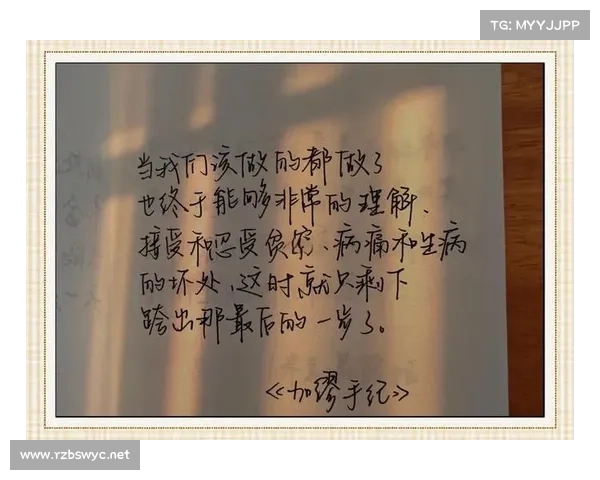 TG: MYYJJPP
当我们该做的都做了
也终于能够非常的理解、
接受和忍受贫穷、病痛和生病
的坏处,这时就只剩下
跨出那最后的一步了。
《加缪手纪》
www.rzbswyc.net